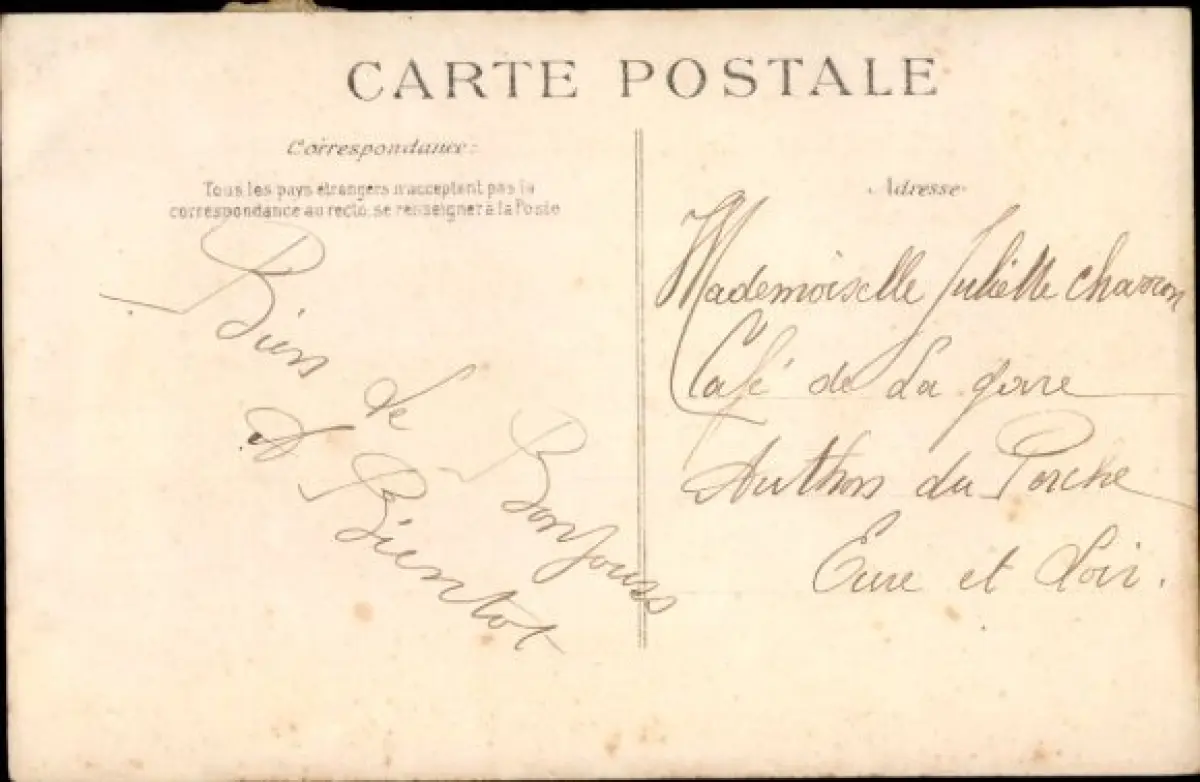 CARTE POSTALE
Correspondance:
Tous les pays étrangers n'acceptent pas la
correspondance au recto, se renseigner à la Poste
Bien Le Bonjours
A Bientot
Adresse
Mademoiselle Juliette
Café de La gare
Authon du Perche
Eure et Loir.